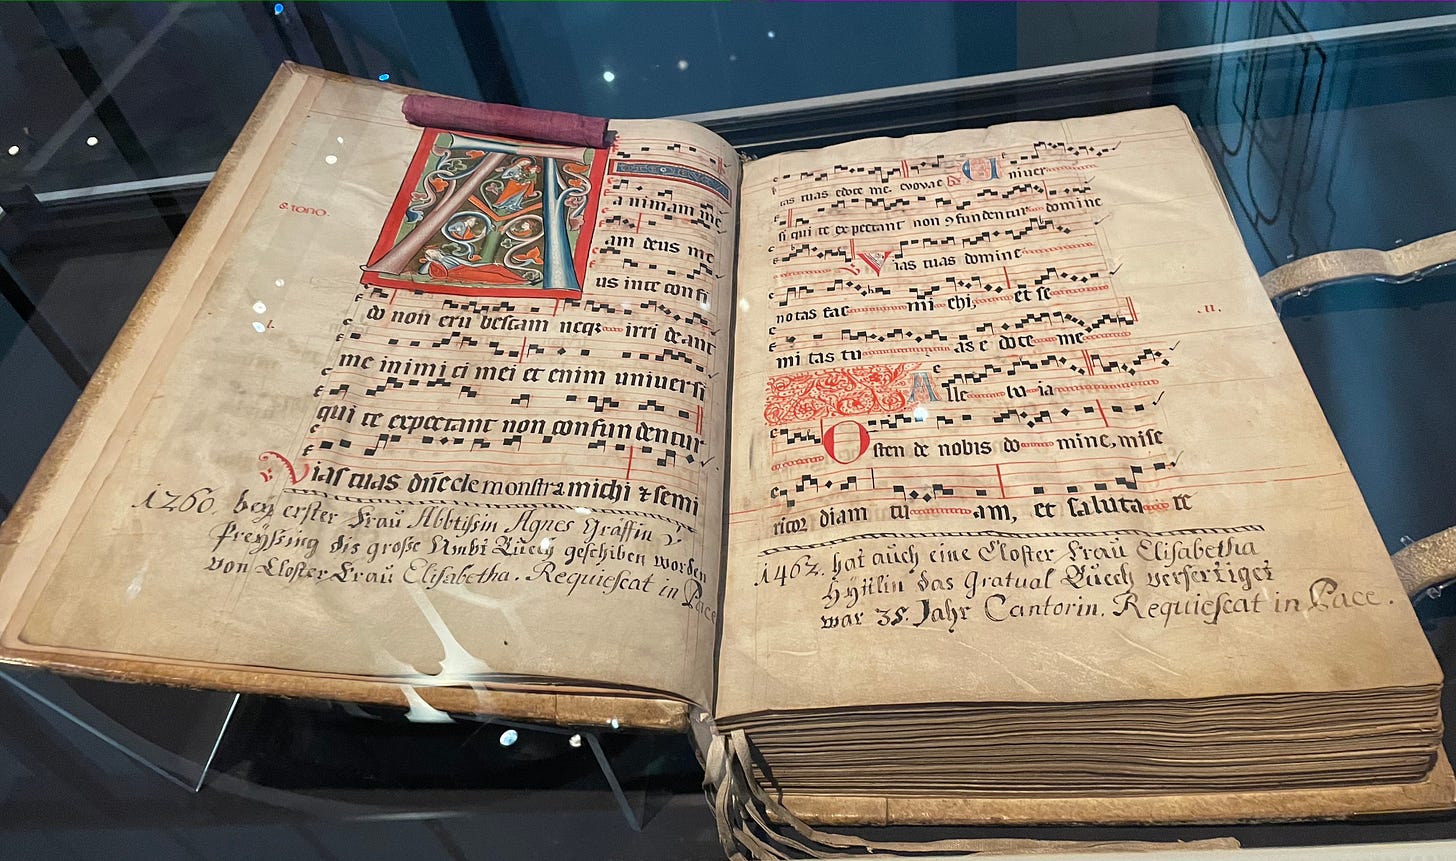 8. tono.
animam me
am deus me
us in te confi
do non eru bescam neqꝫ irri de ant
me inimi ci mei et enim universi
qui te expectant non confun dentur
Vias tuas dñe de monstra michi ⁊ semi
1260. bey erster Frau Abbtissin Agnes Gräffin v
Preysing dis große Ambt Buech geschiben worden
von Closter Frau Elisabetha. Requiescat in Pace
tas tuas edoce me. evovae Univer
si qui te expectant non ꝯfundentur domine
Vias tuas domine
notas fac mi chi, et se
mi tas tu as e doce me
Alle lu ia
Osten de nobis do mine, mise
ricor diam tu am, et saluta re
.II.
1462. hat auch eine Closter Frau Elisabetha
das Gratual Buech verfertiget
war 38. Jahr Cantorin. Requiescat in Pace.